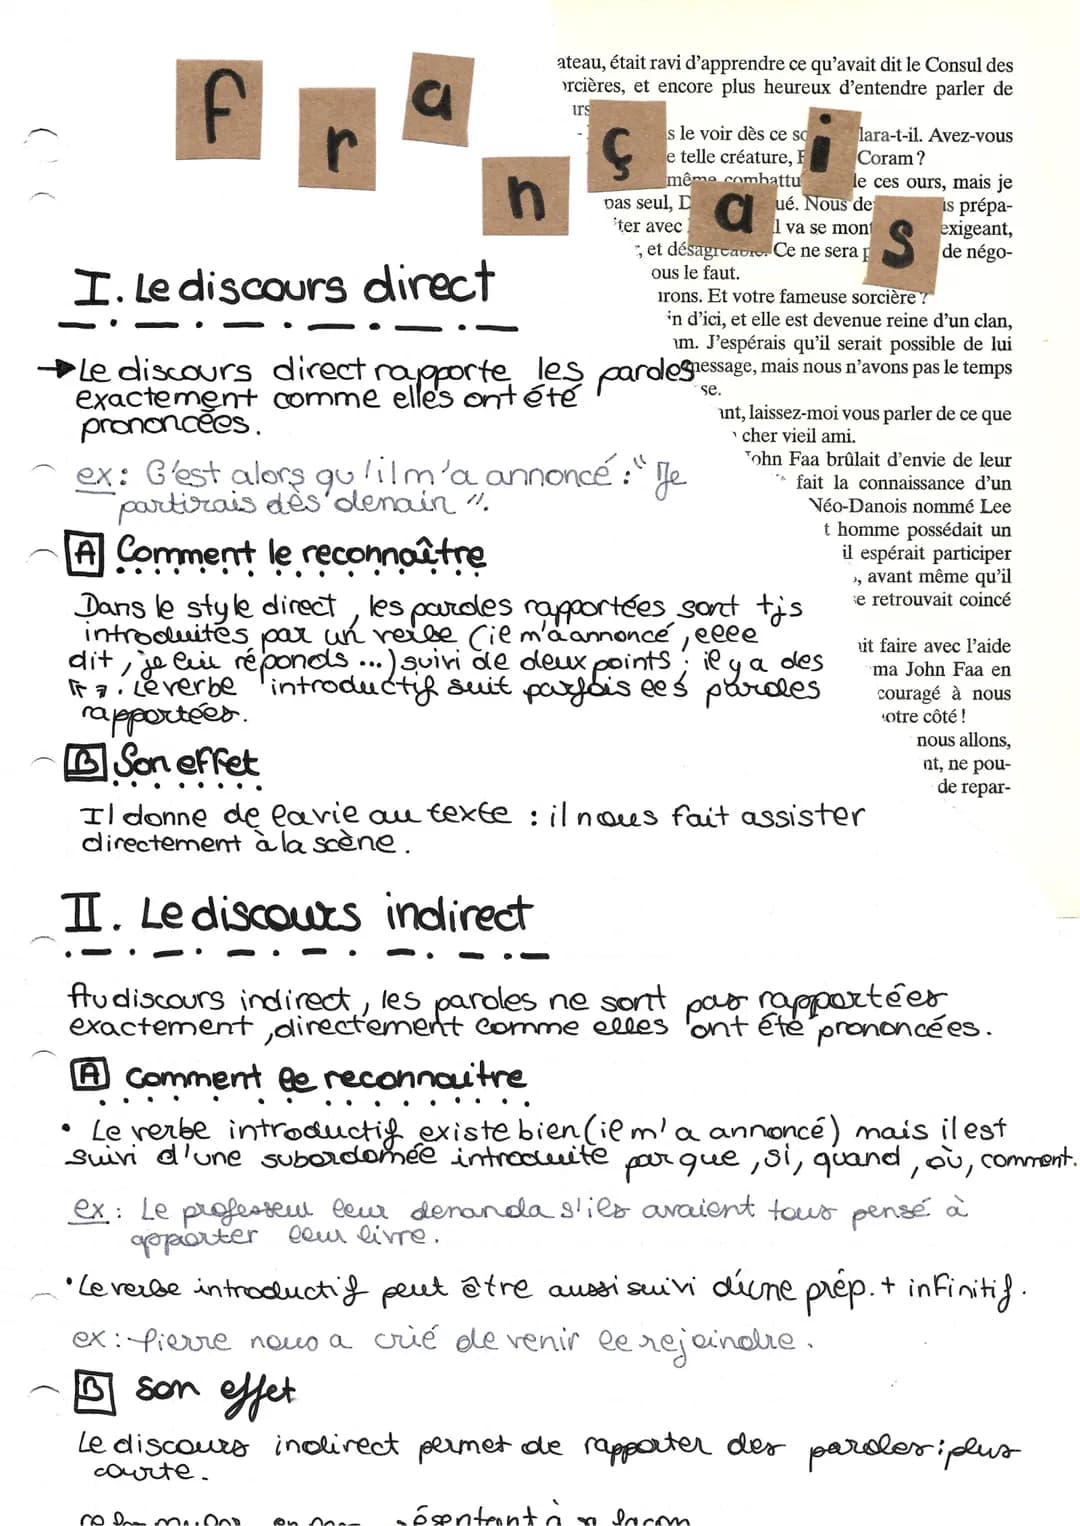 français
ateau, était ravi d'apprendre ce qu'avait dit le Consul des
orcières, et encore plus heureux d'entendre parler de
urs
s le voir dès ce so lara-t-il. Avez-vous
e telle créature, F Coram ?
même combattu le ces ours, mais je
pas seul, D ué. Nous de is prépa-
ter avec l va se mont exigeant,
, et désagréable. Ce ne sera p de négo-
ous le faut.
irons. Et votre fameuse sorcière ?
in d'ici, et elle est devenue reine d'un clan,
am. J'espérais qu'il serait possible de lui
message, mais nous n'avons pas le temps
se.
ant, laissez-moi vous parler de ce que
cher vieil ami.
John Faa brûlait d'envie de leur
fait la connaissance d'un
Néo-Danois nommé Lee
t homme possédait un
il espérait participer
, avant même qu'il
se retrouvait coincé
ait faire avec l'aide
ma John Faa en
couragé à nous
otre côté !
nous allons,
nt, ne pou-
de repar-
I. Le discours direct
→ Le discours direct rapporte les paroles
exactement comme elles ont été
prononcées.
ex: C'est alors qu'il m'a annoncé : "Je
partirais dès demain".
A Comment le reconnaître
Dans le style direct, les paroles rapportées sont tjs
introduites par un verbe (il m'a annoncé, elle
dit, je lui réponds ...) suivi de deux points ; il y a des
. Le verbe introductif suit parfois les paroles
rapportées.
B Son effet
Il donne de la vie au texte : il nous fait assister
directement à la scène.
II. Le discours indirect
Au discours indirect, les paroles ne sont pas rapportées
exactement, directement comme elles ont été prononcées.
A Comment le reconnaitre
• Le verbe introductif existe bien (il m'a annoncé) mais il est
suivi d'une subordonnée introduite par que, si, quand, où, comment.
ex: Le professeur leur demanda s'ils avaient tous pensé à
apporter leur livre.
• Le verbe introductif peut être aussi suivi d'une prép. + infinitif.
ex: Pierre nous a crié de venir le rejoindre.
B son effet
Le discours indirect permet de rapporter des paroles : plus
courte.